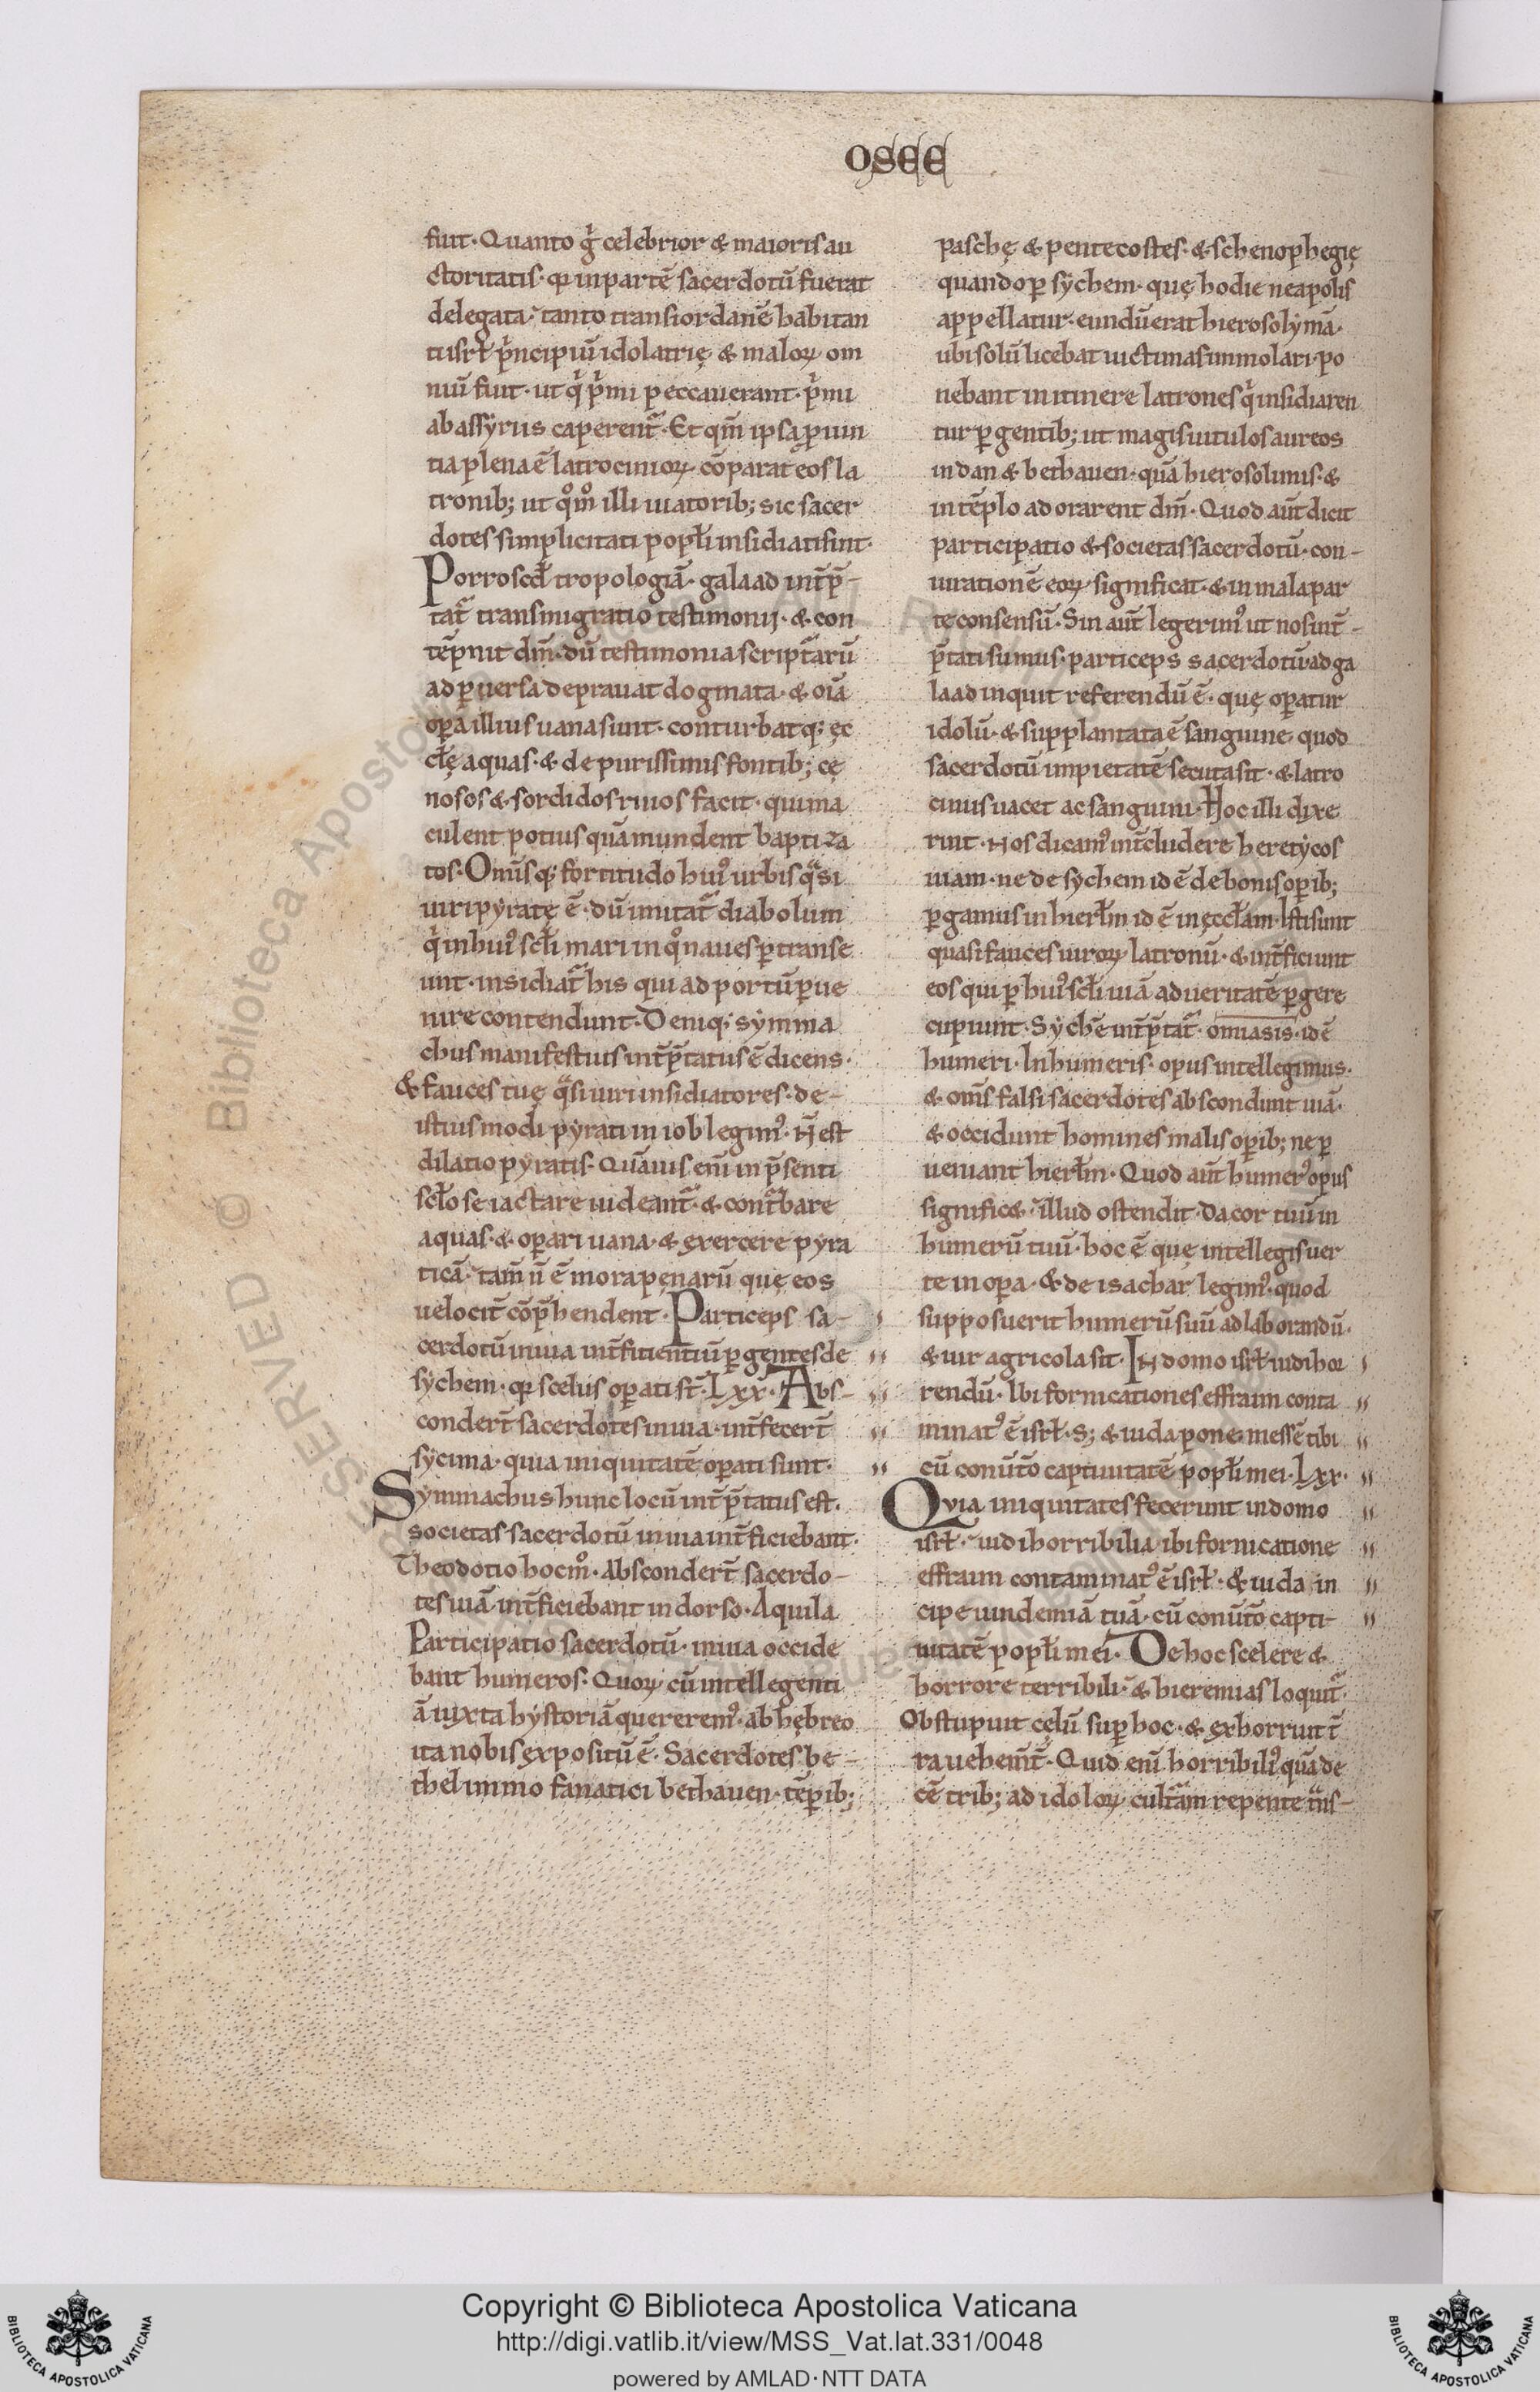 OSEE
fuit· Quanto g̊ celebrior & maioris au
ctoritatis· qꝛ in partē sacerdotū fuerat
delegata· tanto transiordanē habitan
tiisrł pⁱncipiū idolatrię & maloꝝ om
niū fuit· ut qⁱ pⁱmi peccauerant· pⁱmi
ab assyriis caperent᷑· Et qm̄ ipsa puin
tia plena ē latrociniorꝝ cōparat eos la
tronib; ut qͦmͦ illi uiatorib; sic sacer
dotes simplicitati popłi insidiati sint·
Porro scđ tropologiā· galaad int̄p̄-
tat᷑ transmigratio testimonij· & con
tēpnit dm̄· dū testimonia scriptᷓarū
ad ꝑuersa deprauat dogmata· & oīa
oꝑa illius uana sunt· conturbatq; ęc
cłę aquas· & de purissimis fontib; cę
nosos & sordidos riuos facit· qui ma
culent potius quā mundent baptiza
tos· Om̄sq; fortitudo hui᷒ urbis qᷓsi
uiri pyratę ē· dū imitat᷑ diabolum
qⁱ in hui᷒ scłi mari in qͦ naues ꝑtranse
unt· insidiat᷑ his qui ad portū ꝑue
nire contendunt· Deniq; symma
chus manifestius int̄p̄tatus ē dicens·
& fauces tuę qᷓsi uiri insidiatores· de-
istiusmodi pyrati in iob legim᷒· N̄ est
dilatio pyratis· Quāuis enī in p̄senti
scło se iactare uideant᷑· & contᷓbare
aquas· & oꝑari uana· & exercere pyra
ticā· tam̄ n̄ ē mora pęnarū quę eos
uelocit̄ cōp̄hendent· Particeps sa-
cerdotū in uia int̄ficientiū ꝑgentes de
sychem· qꝛ scelus oꝑati st̄· Lxx· Abs-
condert̄ sacerdotes in uia· int̄fecert̄
sycima· quia iniquitatē oꝑati sunt·
Symmachus hunc locū int̄p̄tatus est·
societas sacerdotū in uia int̄ficiebant·
Theodotio hocmͦ· Abscondert̄ sacerdo-
tes uiā· int̄ficiebant in dorso· Aquila
Participatio sacerdotū· in uia occide
bant humeros· Quoꝝ cū intellegenti
ā iuxta hystoriā quererem᷒· ab hębreo
ita nobis expositū ē· Sacerdotes be-
thel immo fanatici bethauen· tēꝑib;
paschę & pentecostes· & schenophegię
quando ꝑ sychem· quę hodie neapolis
appellatur· eundū erat hierosolymā·
ubi solū licebat uictimas immolari· po
nebant in itinere latrones qⁱ insidiaren
tur ꝑgentib; ut magis uitulos aureos
in dan & bethauen· quā hierosolimis· &
in tēplo adorarent dm̄· Quod aut̄ dicit
participatio & societas sacerdotū· con-
iurationē eoꝝ significat· & in mala par
te consensū· Sin aut̄ legerim᷒ ut nos int̄-
p̄tati sumus· particeps sacerdotū· ad ga
laad inquit referendū ē· quę oꝑatur
idolū· & supplantata ē sanguine· quod
sacerdotū impietatē secuta sit· & latro
ciniis uacet ac sanguini· Hoc illi dixe
rint· Nos dicam᷒ int̄cludere heretycos
uiam· ne de sychem id ē de bonis oꝑib;
ꝑgamus in hierłm id ē in ęccłam· Isti sunt
quasi fauces uiroꝝ latronū· & int̄ficiunt
eos qui ꝑ hui᷒ scłi uiā ad ueritatē ꝑgere
cupiunt· Sychē int̄p̄tat᷑· omiasis· id ē
humeri· In humeris· opus intellegimus·
& om̄s falsi sacerdotes abscondunt uiā·
& occidunt homines malis oꝑib; ne ꝑ
ueniant hierłm· Quod aut̄ humer᷒ opus
significæ· illud ostendit· Da cor tuū in
humerū tuū· hoc ē quę intellegis uer
te in oꝑa· & de isachar legim᷒· quod
supposuerit humerū suū ad laborandū·
& uir agricola sit· In domo isrł uidi hor
rendū· Ibi fornicationes effraim conta
minat᷒ ē isrł· S; & iuda pone messē tibi
cū conūt̄o captiuitatē popłi mei· Lxx·
Quia iniquitates fecerunt in domo
isrł· uidi horribilia ibi fornicatione
effraim contaminat᷒ ē isrł· & iuda in
cipe uindemiā tuā· cū conūt̄o capti-
uitatē popłi mei· De hoc scelere &
horrore terribili· & hieremias loquit᷑·
Obstupuit cęlū suꝑ hoc· & exhorruit t̄
ra uehem̄t̄· Quid enī horribili᷒ quā de
cē trib; ad idoloꝝ cultᷓam repente tᷓns-
Copyright © Biblioteca Apostolica Vaticana
http://digi.vatlib.it/view/MSS_Vat.lat.331/0048
powered by AMLAD·NTT DATA
BIBLIOTECA APOSTOLICA VATICANA
BIBLIOTECA APOSTOLICA VATICANA